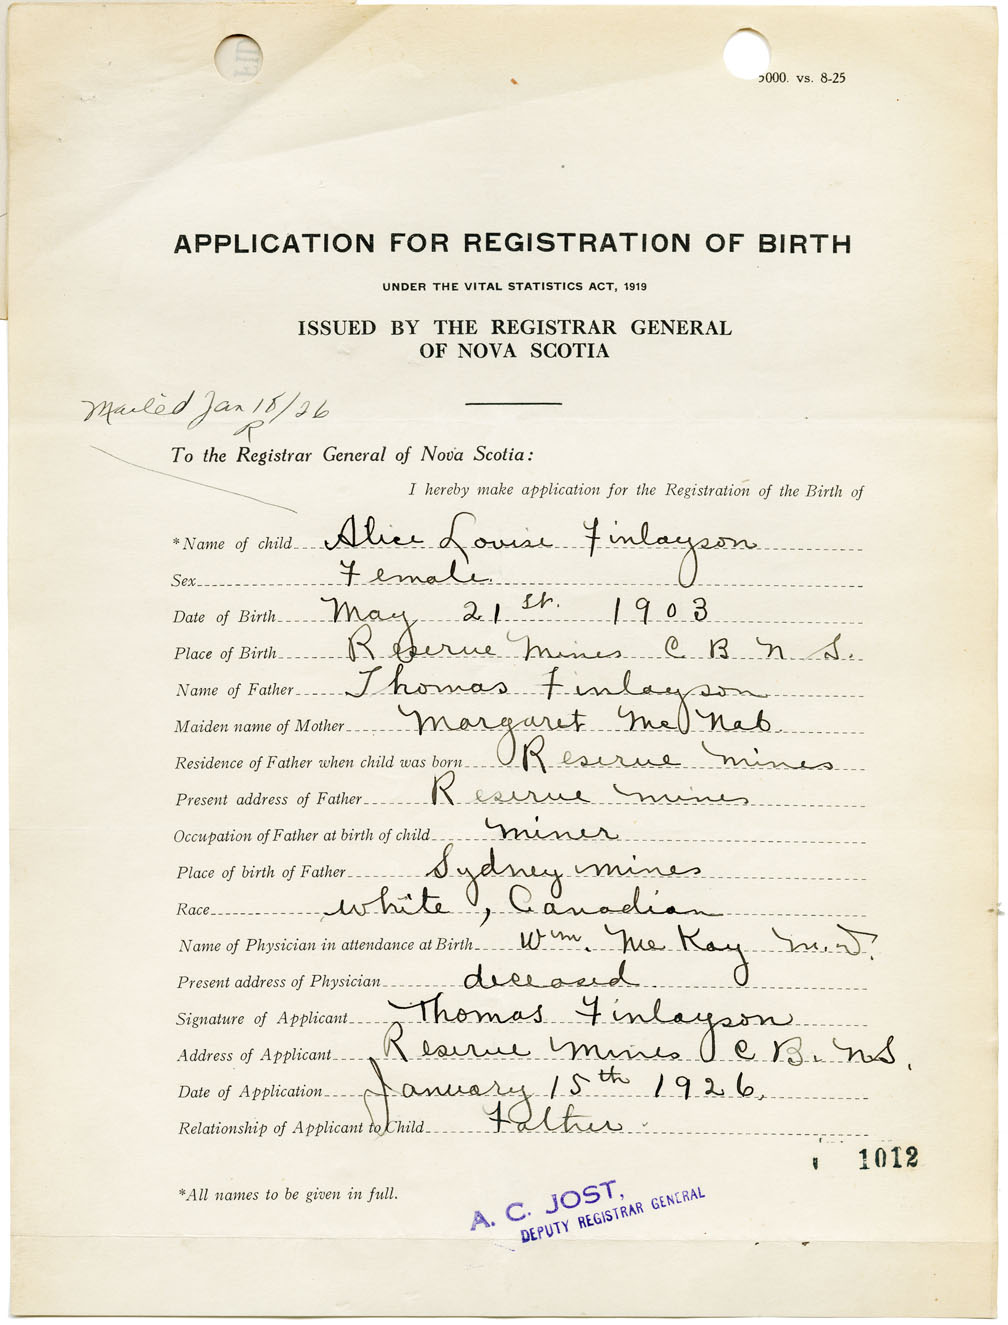 5000. vs. 8-25
APPLICATION FOR REGISTRATION OF BIRTH
UNDER THE VITAL STATISTICS ACT, 1919
ISSUED BY THE REGISTRAR GENERAL
OF NOVA SCOTIA
Mailed Jan 18/26
R
To the Registrar General of Nova Scotia:
I hereby make application for the Registration of the Birth of
*Name of child Alice Louise Finlayson
Sex Female
Date of Birth May 21st. 1903
Place of Birth Reserve Mines C B N S.
Name of Father Thomas Finlayson
Maiden name of Mother Margaret McNab.
Residence of Father when child was born Reserve Mines
Present address of Father Reserve Mines
Occupation of Father at birth of child Miner
Place of birth of Father Sydney Mines
Race white, Canadian
Name of Physician in attendance at Birth Wm. McKay M.D.
Present address of Physician deceased
Signature of Applicant Thomas Finlayson
Address of Applicant Reserve Mines C B. N S.
Date of Application January 15th 1926.
Relationship of Applicant to Child Father
1012
*All names to be given in full.
A. C. JOST,
DEPUTY REGISTRAR GENERAL